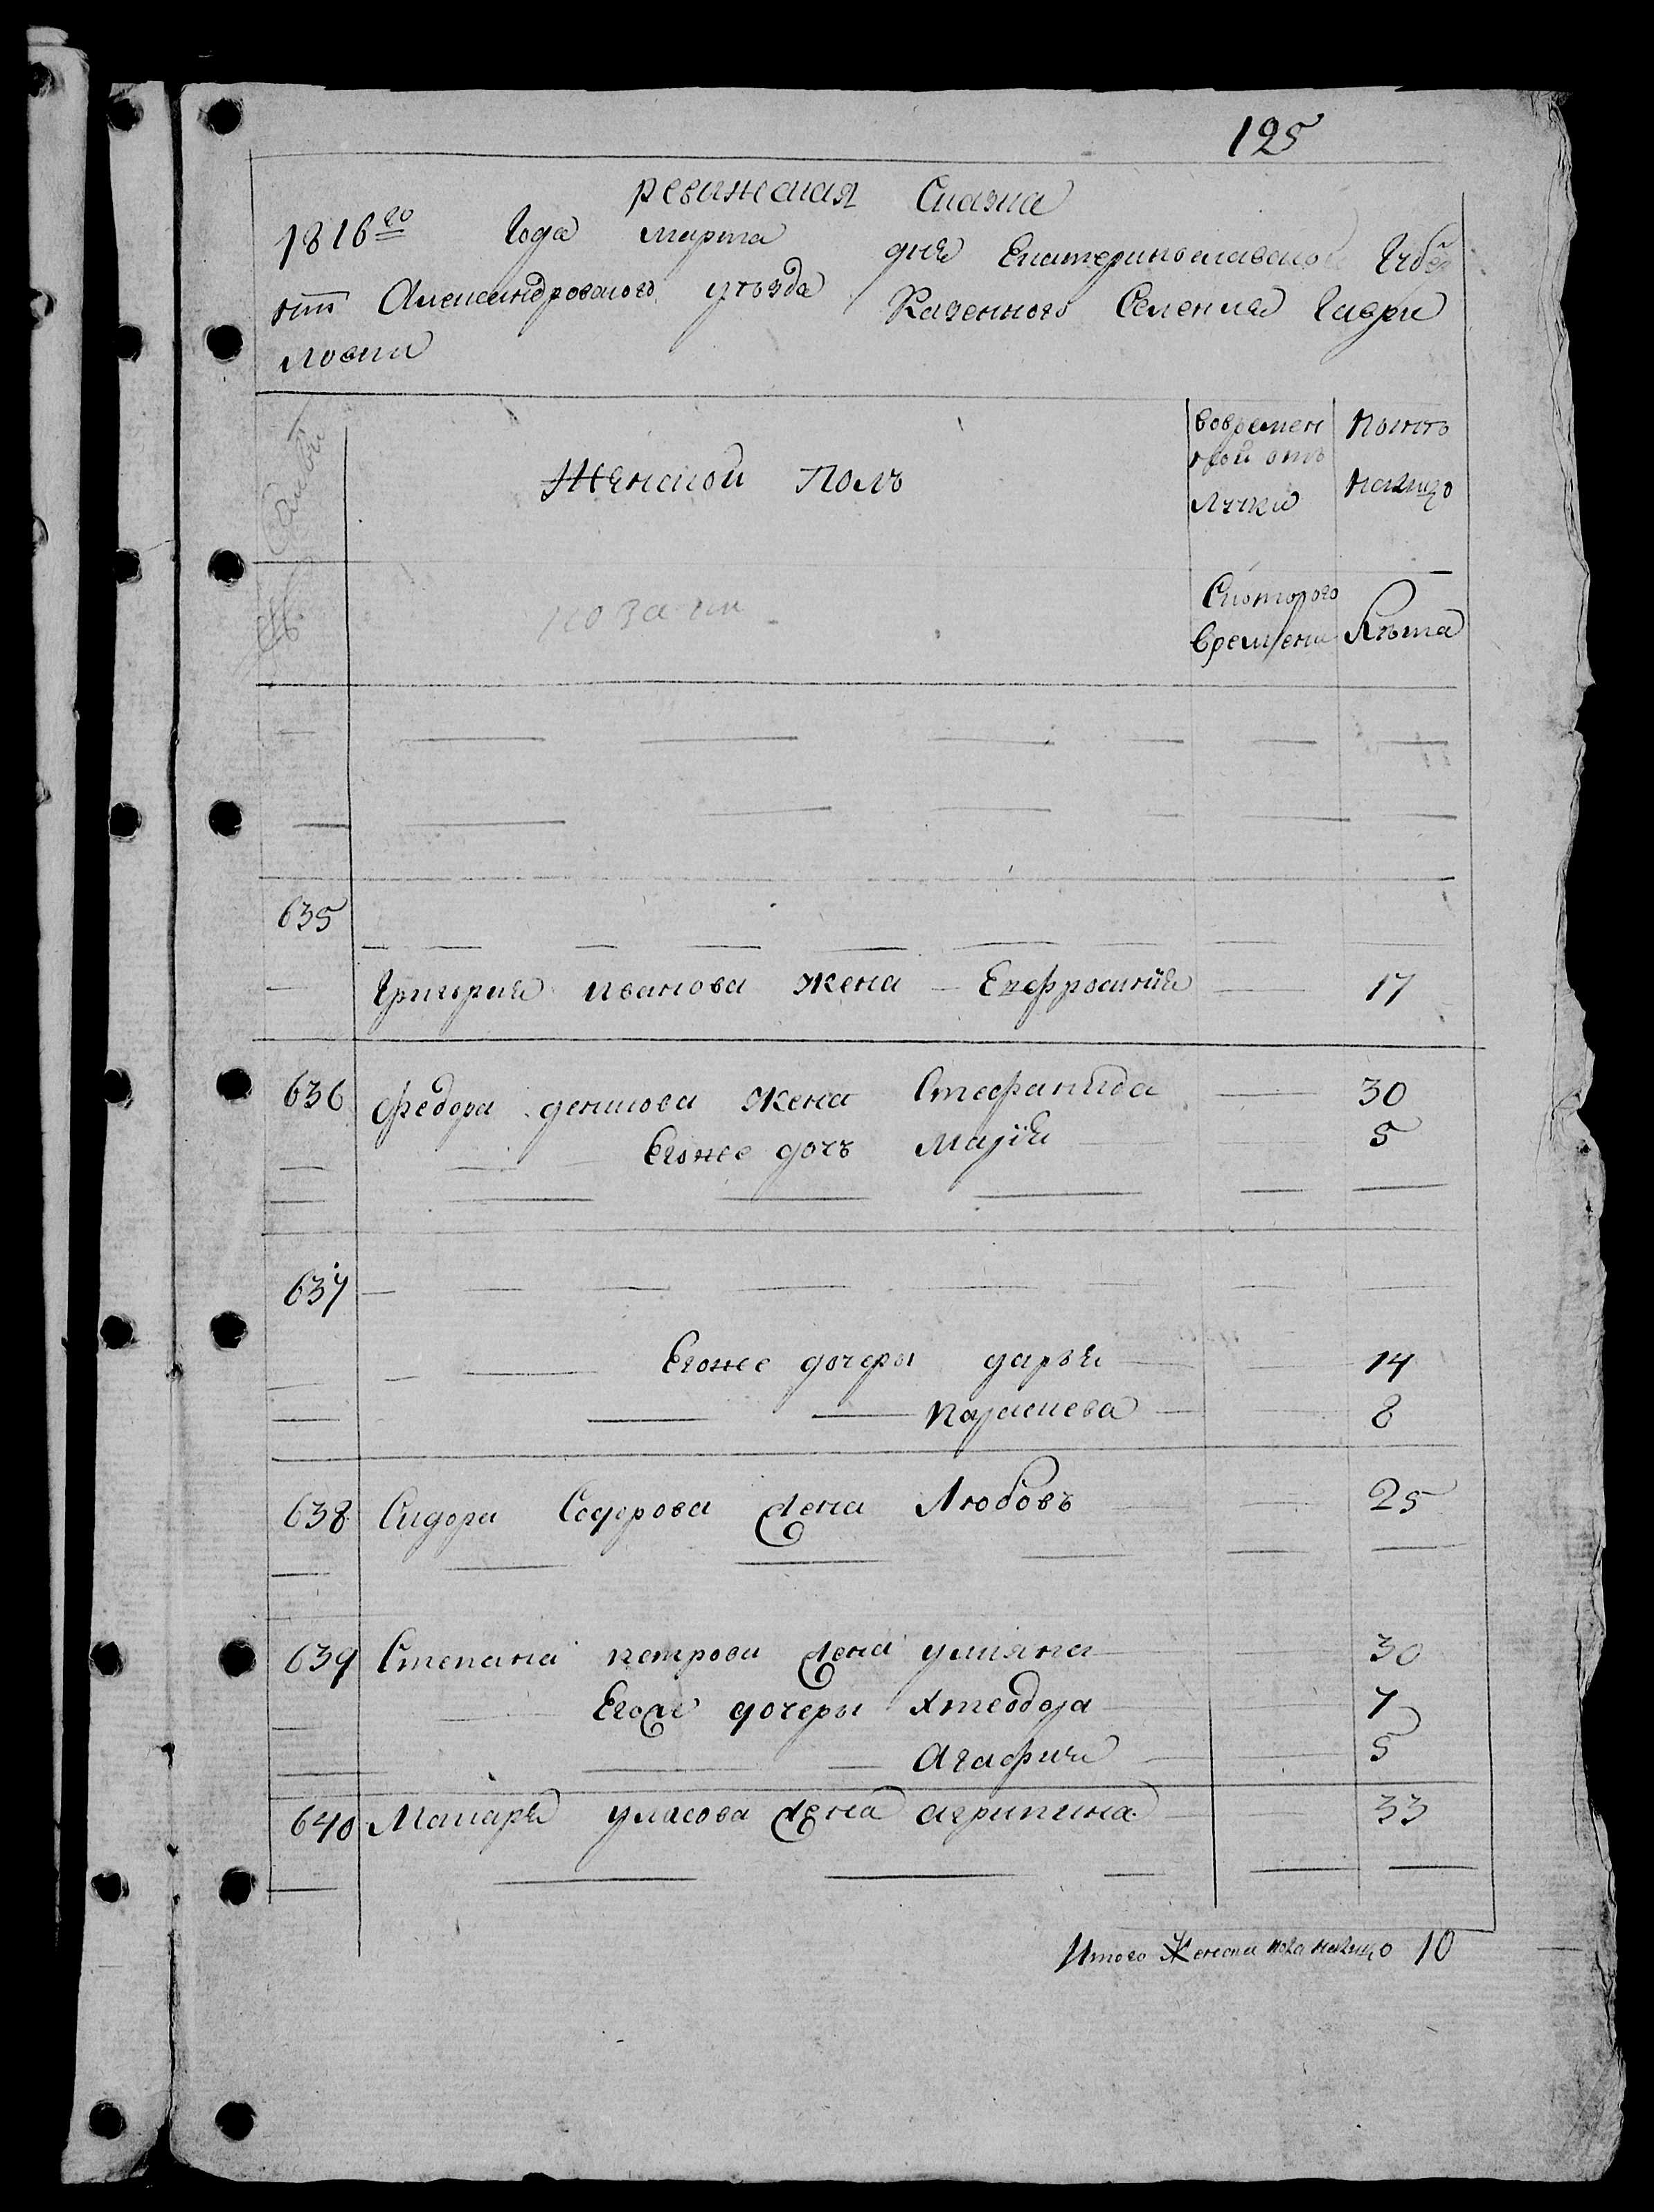 125
ревижская Сказка
1816го Года марта дня Екатеринославской Губер
нии Александровского уѣзда Казенного Селения Гаври
ловки
Семьи
Женской Полъ
Вовремен
ной отъ
лучки
Нынѣ
налицо
казаки
Скоторого
времени
Лѣта
635
Григория иванова жена Епефросиния 17
636 Федора денисова жена Стефанида 30
Егоже дочъ Марія 5
637
Егоже дочеры даръя 14
параскева 8
638 Сидора Содорова жена Любовъ 25
639 Степана петрова жена улияна 30
Егоже дочеры Хтеодора 7
Агафия 5
640 Макара уласова жена агрипина 33
Итого Женска пола налицо 10